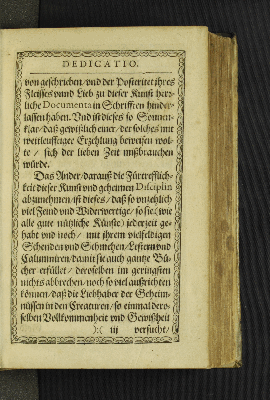 DEDICATIO.
von geschrieben/vnd der Posteritet jhres
Fleisses vnnd Lieb zu dieser Kunst herr-
liche Documenta in Schrifften hinder-
lassen haben. Vnd ist dieses so Sonnen-
klar/daß gewißlich einer/der solches mit
weitleufftiger Erzehlung beweisen wol-
te / sich der lieben Zeit mißbrauchen
würde.
Das Ander/darauß die Fürtrefflich-
keit dieser Kunst vnd geheimen Disciplin
abzunehmen/ist dieses/daß so vnzehlich
viel Feind vnd Widerwertige/so sie (wie
alle gute nützliche Künst) jederzeit ge-
habt vnd noch/ mit jhrem vielfeldigen
Schenden vnd Schmehen/Lestern vnd
Calumniiren/damit sie auch gantze Bü-
cher erfüllet/ deroselben im geringsten
nichts abbrechen/noch so viel außrichten
können/daß die Liebhaber der Geheim-
nüssen in den Creaturen/so einmal dero-
selben Vollkommenheit vnd Gewißheit
):( iij versucht/